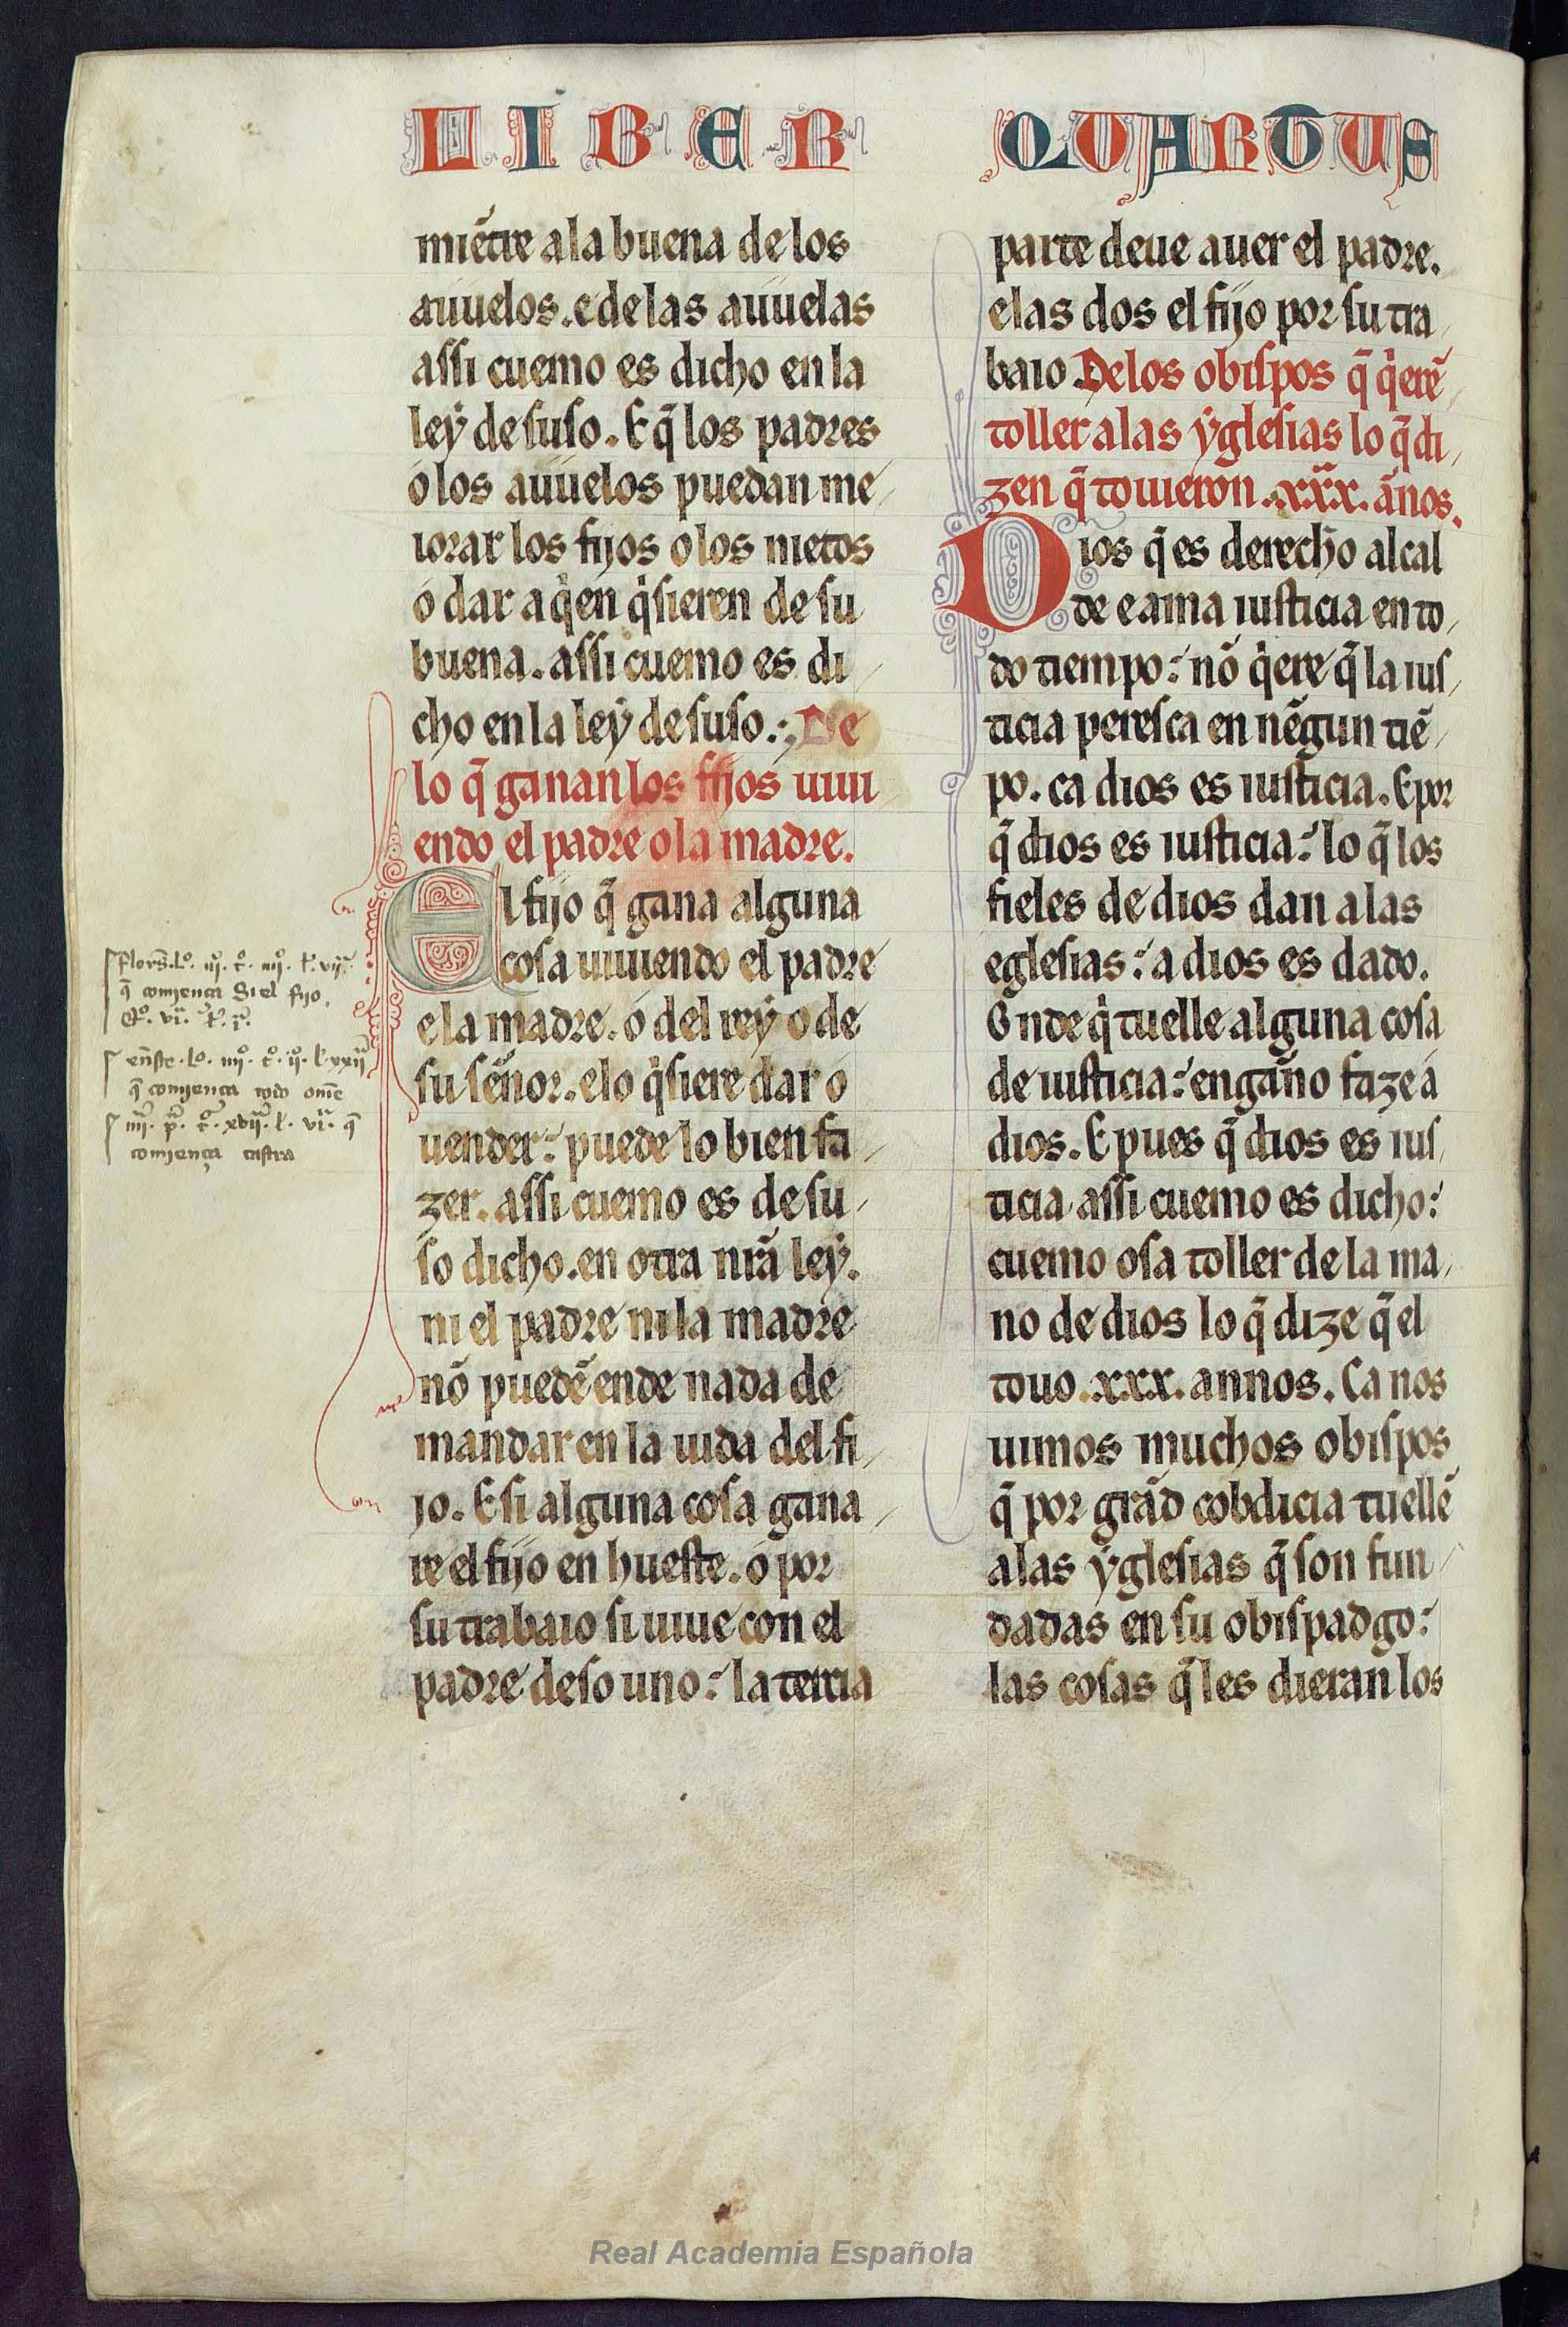 LIBER QUARTUS
miẽtre ala buena de los
auuelos.e delas auuelas
assi cuemo es dicho en la
leẏ de suso. E q̃ los padres
o los auuelos puedan me
iorar los fijos o los nietos
o dar a qͥen qͥsieren de su
buena. assi cuemo es di
cho en la leẏ de suso. De
lo q̃ ganan los fijos uiui
endo el padre o la madre.
El fijo q̃ gana alguna
cosa uiuiendo el padre
e la madre. o del reẏ o de
su sennor. e lo qͥsiere dar o
uender: puede lo bien fa
zer. assi cuemo es de su
so dicho. en otra nr̃a leẏ.
ni el padre ni la madre
nõ puedẽ ende nada de
mandar en la uida del fi
jo. E si alguna cosa gana
re el fijo en hueste. o por
su trabaio si uiue con el
padre deso uno: la tercia
parte deue auer el padre.
e las dos el fijo por su tra
baio. Delos obispos q̃ qͥerẽ
toller alas ẏglesias lo q̃ di
zen q̃ touieron .xxx. ãnos.
Dios q̃ es derecho alcal
de e ama iusticia en to
do tiempo: nõ qͥere q̃ la ius
ticia peresca en nẽgun tiẽ
po. ca dios es iusticia. E por
q̃ dios es iusticia: lo q̃ los
fieles de dios dan a las
eglesias: a dios es dado.
Onde qͥ tuelle alguna cosa
de iusticia: engan̄o faze a
dios. E pues q̃ dios es ius
ticia assi cuemo es dicho:
cuemo osa toller de la ma
no de dios lo q̃ dize q̃ el
touo .xxx. annos. Ca nos
uimos muchos obispos
q̃ por grãd cobdicia tuellẽ
alas ẏglesias q̃ son fun
dadas en su obispadgo:
las cosas q̃ les dieran los
q̃ comjença Si el fijo.
q̃ comjença todo om̃e
comjença castra
Real Academia Española